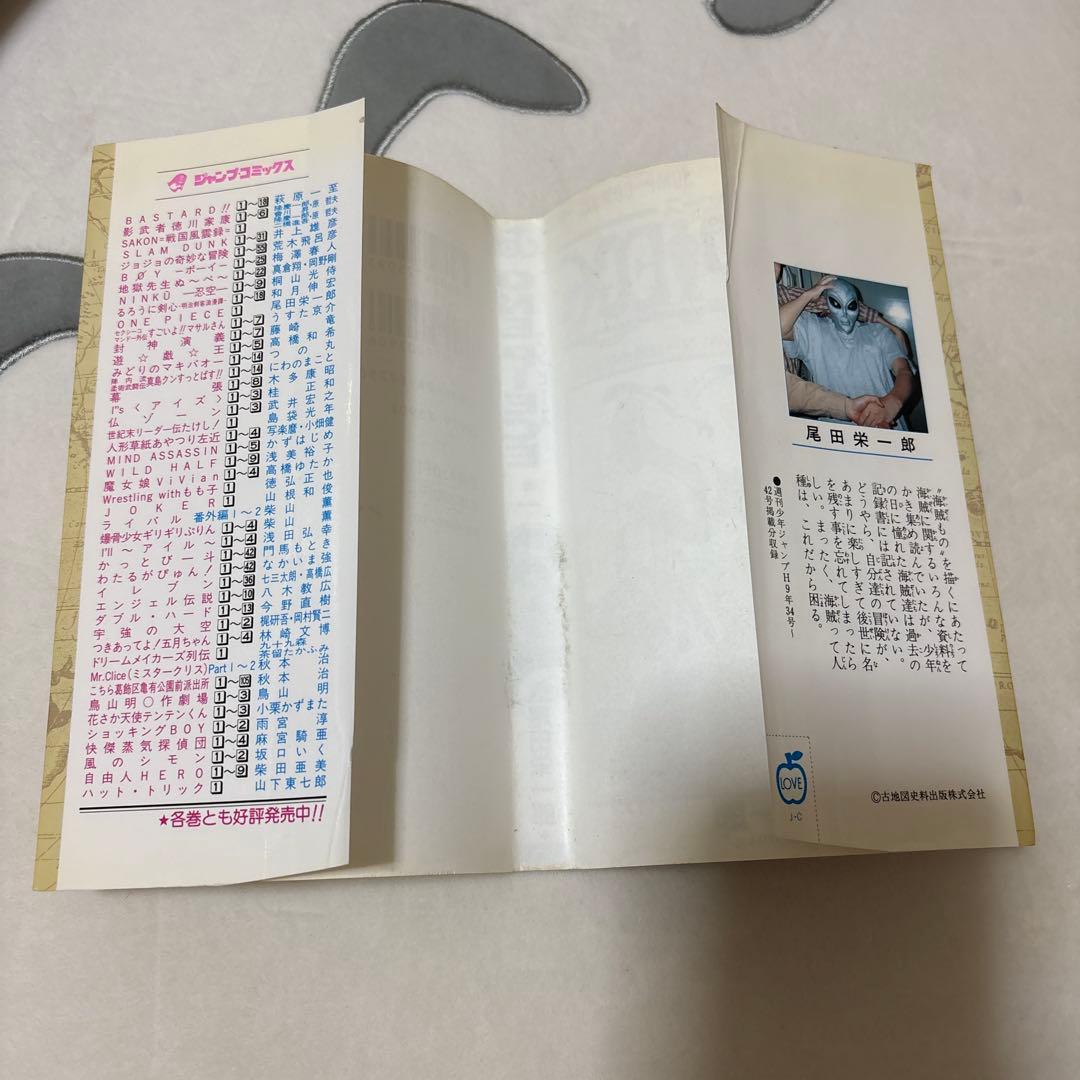 ジャンプ・コミックス
BASTARD!! 1〜18 萩原一至
影武者徳川家康 1〜6
SAKON=戦国風雲録=
SLAM DUNK 1〜31 井上雄彦
ジョジョの奇妙な冒険 荒木飛呂彦
BØY ーボーイー 1〜25 梅澤春人
地獄先生ぬ〜べ〜 1〜22 真倉翔・岡野剛
NINKŪ ―忍空― 桐山光侍
るろうに剣心・明治剣客浪漫譚・ 1〜18 和月伸宏
ONE PIECE 1 尾田栄一郎
セクシーコマンドー外伝 すごいよ!!マサルさん 1〜7 うすた京介
封神演義 1〜7 藤崎竜
遊☆戯☆王 1〜5 高橋和希
みどりのマキバオー 1〜14 つの丸
陣内流柔術武闘伝 真島クンすっとばす!! 1〜14 にわのまこと
幕張 1〜8 木多康昭
I"s〈アイズ〉 1〜3 桂正和
仏ゾーン 1〜3 武井宏之
世紀末リーダー伝たけし! 1 島袋光年
人形草紙あやつり左近 1〜4 写楽麿・小畑健
MIND ASSASSIN 1〜5 かずはじめ
WILD HALF 1〜9 浅美裕子
魔女娘ViVian 1〜4 高橋ゆたか
Wrestling withもも子 1 徳弘正也
JOKER 1 山根和俊
ライバル 番外編1〜2 柴山薫
爆骨少女ギリギリぷりん 1〜4 柴山薫
I'll 〜アイル〜 1〜4 浅田弘幸
かっとび一斗 1〜42 門馬もとき
わたるがぴゅん! 1〜42 なかいま強
イレブン 1〜36 七三太朗・高橋広
エンジェル伝説 1〜10 八木教広
ダブル・ハード 1〜13 今野直樹
宇強の大空 1〜2 梶研吾・岡村賢二
つきあってよ!五月ちゃん 1〜4 林崎文博
ドリームメイカーズ列伝 1 九十九森 茶留たかふみ
Mr.Clice(ミスタークリス) Part 1〜2 秋本治
こちら葛飾区亀有公園前派出所 1〜105 秋本治
鳥山明○作劇場 1〜3 鳥山明
花さか天使テンテンくん 1〜3 小栗かずまた
ショッキングBOY 1〜2 雨宮淳
快傑蒸気探偵団 1〜4 麻宮騎亜
風のシモン 1〜2 坂口いく
自由人HERO 1〜9 柴田亜美
ハット・トリック 1 山下東七郎
★各巻とも好評発売中!!
尾田栄一郎
"海賊もの"を描くにあたって
海賊に関するいろんな資料を
かき集め読んでいたが、少年
の日に憧れた海賊達は過去の
記録書には記されていない。
どうやら、自分達の冒険が、
あまりに楽しすぎて後世に名
を残す事を忘れてしまったら
しい。まったく、海賊って人
種は、これだから困る。
●週刊少年ジャンプH9年34号〜
42号掲載分収録
LOVE
J・C
©古地図史料出版株式会社